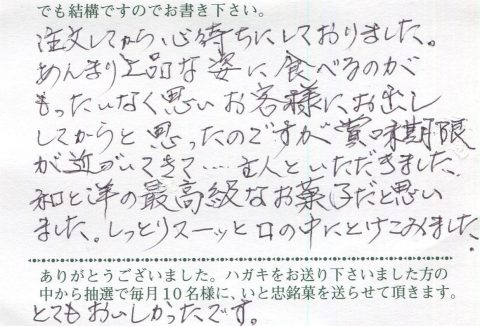 でも結構ですのでお書き下さい。
注文してから、心待ちにしておりました。
あんまり上品な姿に食べるのが
もったいなく思いお客様にお出し
してからと思ったのですが賞味期限
が近づいてきて…主人といただきました。
和と洋の最高級なお菓子だと思い
ました。しっとりスーッと口の中にとけこみました。
ありがとうございました。ハガキをお送り下さいました方の
中から抽選で毎月10名様に、いと忠銘菓を送らせて頂きます。
とてもおいしかったです。